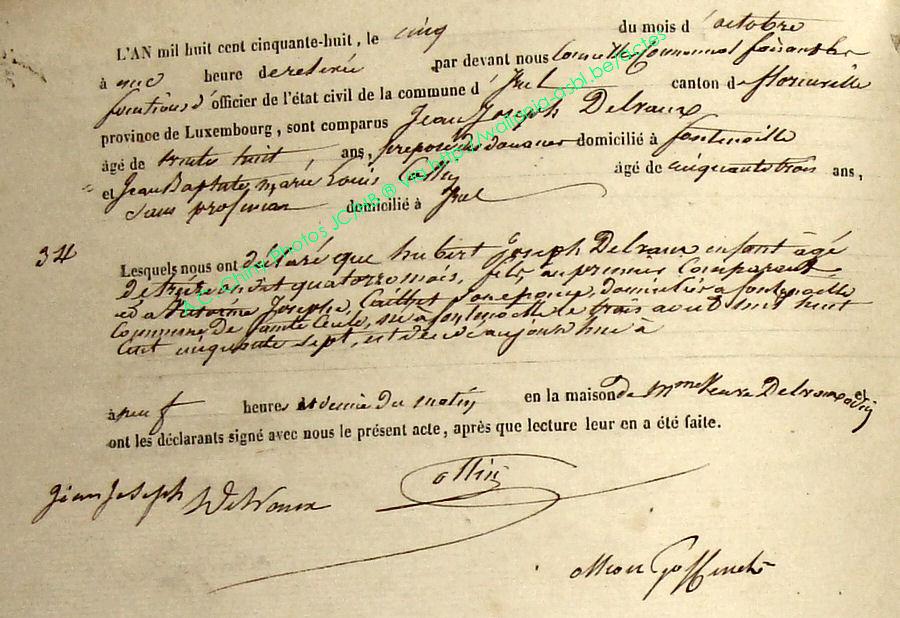 L'AN mil huit cent cinquante-huit, le cinq du mois d'octobre
à une heure de relevée par devant nous Conseiller Communal faisant les
fonctions d'officier de l'état civil de la commune d'Izel canton de florenville
province de Luxembourg, sont comparus Jean Joseph Delvaux
âgé de trente huit, ans, preposé des douanes domicilié à fontenoille
et Jean Baptiste marie Louis Collin âgé de cinquante trois ans,
sans profession domicilié à Izel
34
Lesquels nous ont déclaré que hubert Joseph Delvaux enfant âgé
de treize an et quatorze mois, fils au premier Comparant
et a Joseph son epouse, domiciliés a fontenoille
Commune de Sainte Cecile, né à fontenoille le trois aout mil huit
Cent cinquante sept, est décédé aujourd'hui à
à neuf heures et demie du matin en la maison de Mme Veuve Delvaux et
ont les déclarants signé avec nous le présent acte, après que lecture leur en a été faite.
Jean Joseph Delvaux
ollin
A.C. Chiny Photos JC/MB ® via http://wallonia-asbl.be/actes